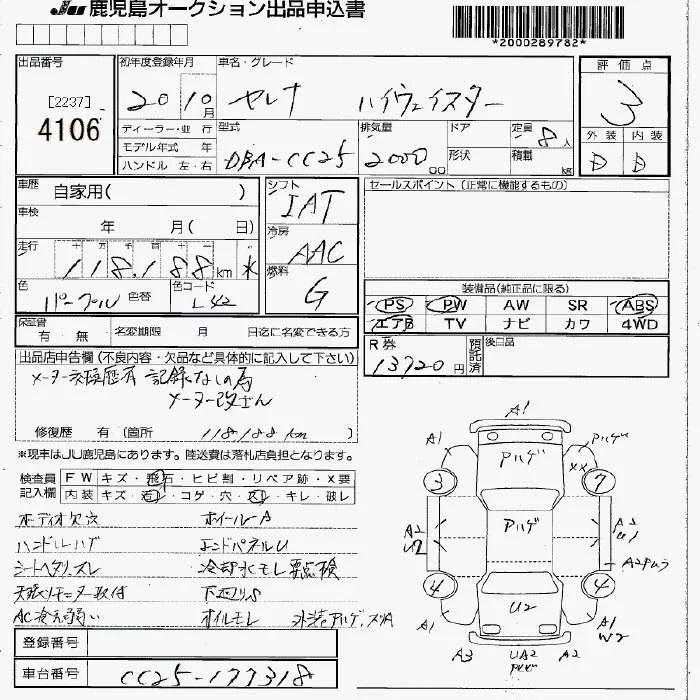 JU 鹿児島オークション出品申込書
*2000289782*
出品番号
[2237]
4106
初年度登録年月
20 10月
車名・グレード
セレナ ハイウェイスター
評価点
3
外装 内装
D D
ディーラー・並行
モデル年式 年
ハンドル 左・右
型式
DBA-CC25
排気量
2000 cc
ドア
形状
定員
8人
積載
kg
車歴
自家用( )
車検
年 月( 日)
走行
十 万 千 百 十 一
118,188 km
色
パープル
色替
色コード
L42
シフト
IAT
冷房
AAC
燃料
G
セールスポイント(正常に機能するもの)
装備品(純正品に限る)
PS PW AW SR ABS
エアB TV ナビ カワ 4WD
保証書
有・無
名変期限 月 日迄に名変できる方
R券
13720円
預託済
後日品
出品店申告欄(不良内容・欠品など具体的に記入して下さい)
メーター交換歴有 記録なしの為
メーター改ざん
修復歴 有(箇所 118188km )
※現車はJU鹿児島にあります。陸送費は落札店負担となります。
検査員記入欄
FWキズ・飛石・ヒビ割・リペア跡・X要
内装キズ・・コゲ・穴・・キレ・破レ
オーディオ欠品 ホイールA
ハンドルハゲ エンドパネルU
シートヘタリ、スレ 冷却水モレ要点検
天張リモニター取付 下回リS
AC冷え弱い オイルモレ 外装色アルハゲ、スリA
登録番号
車台番号
CC25-177318
A1
A1 Pハゲ Pハゲ
XX
3 7
Pハゲ
A2 U2 A2 U1
A2Pムラ
4 4
U2
A1 A1 W2
A3 UA2 Pハゲ A2